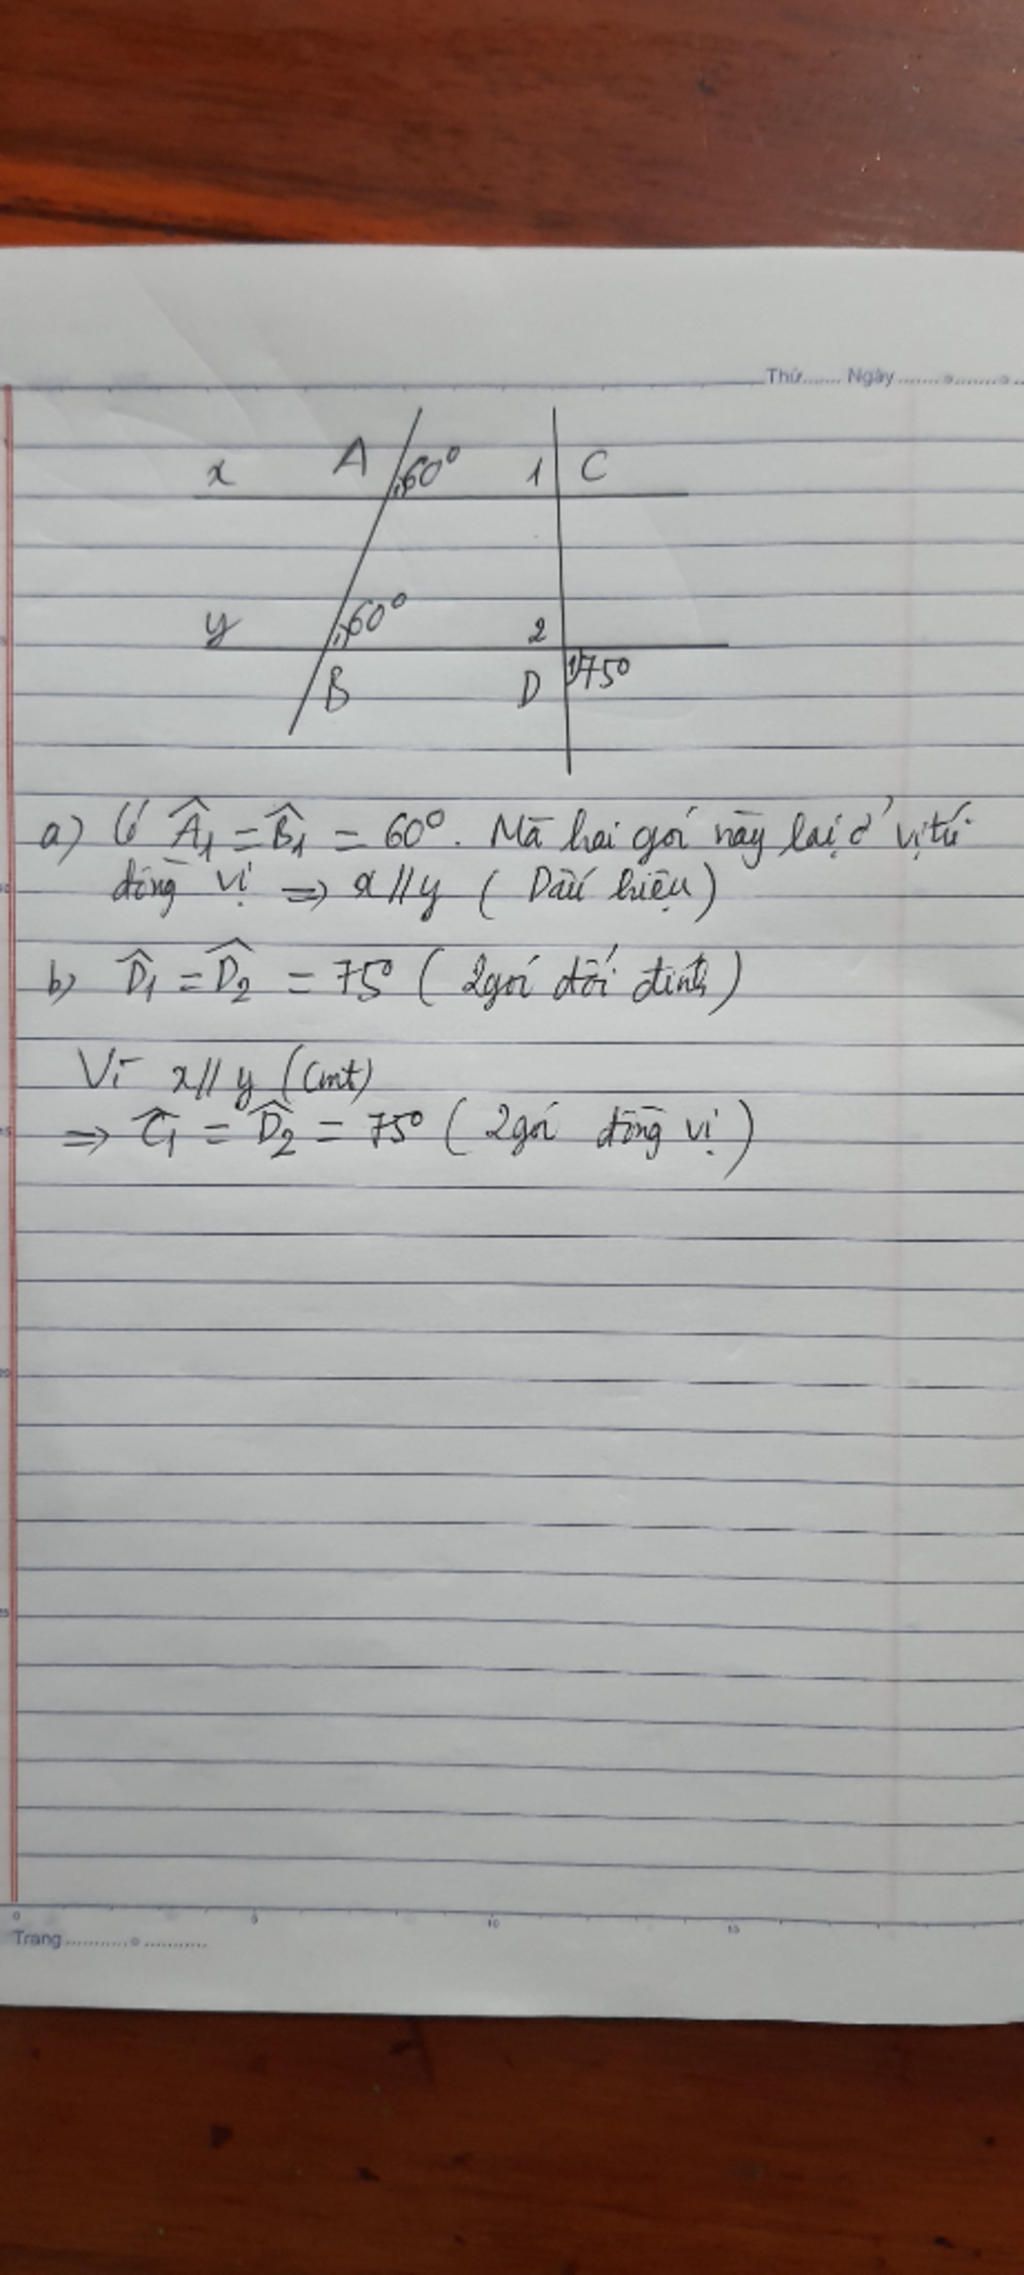 Thứ....... Ngày
x A 60° 1 C
y 60° 2
B D 1 75°
a) Có Â₁ = B̂₁ = 60°. Mà hai góc này lại ở vị trí
đồng vị ⇒ x // y ( Dấu hiệu )
b) D̂₁ = D̂₂ = 75° ( 2 góc đối đỉnh )
Vì x // y (cmt)
⇒ Ĉ₁ = D̂₂ = 75° ( 2 góc đồng vị )
0 5 10 15
Trang